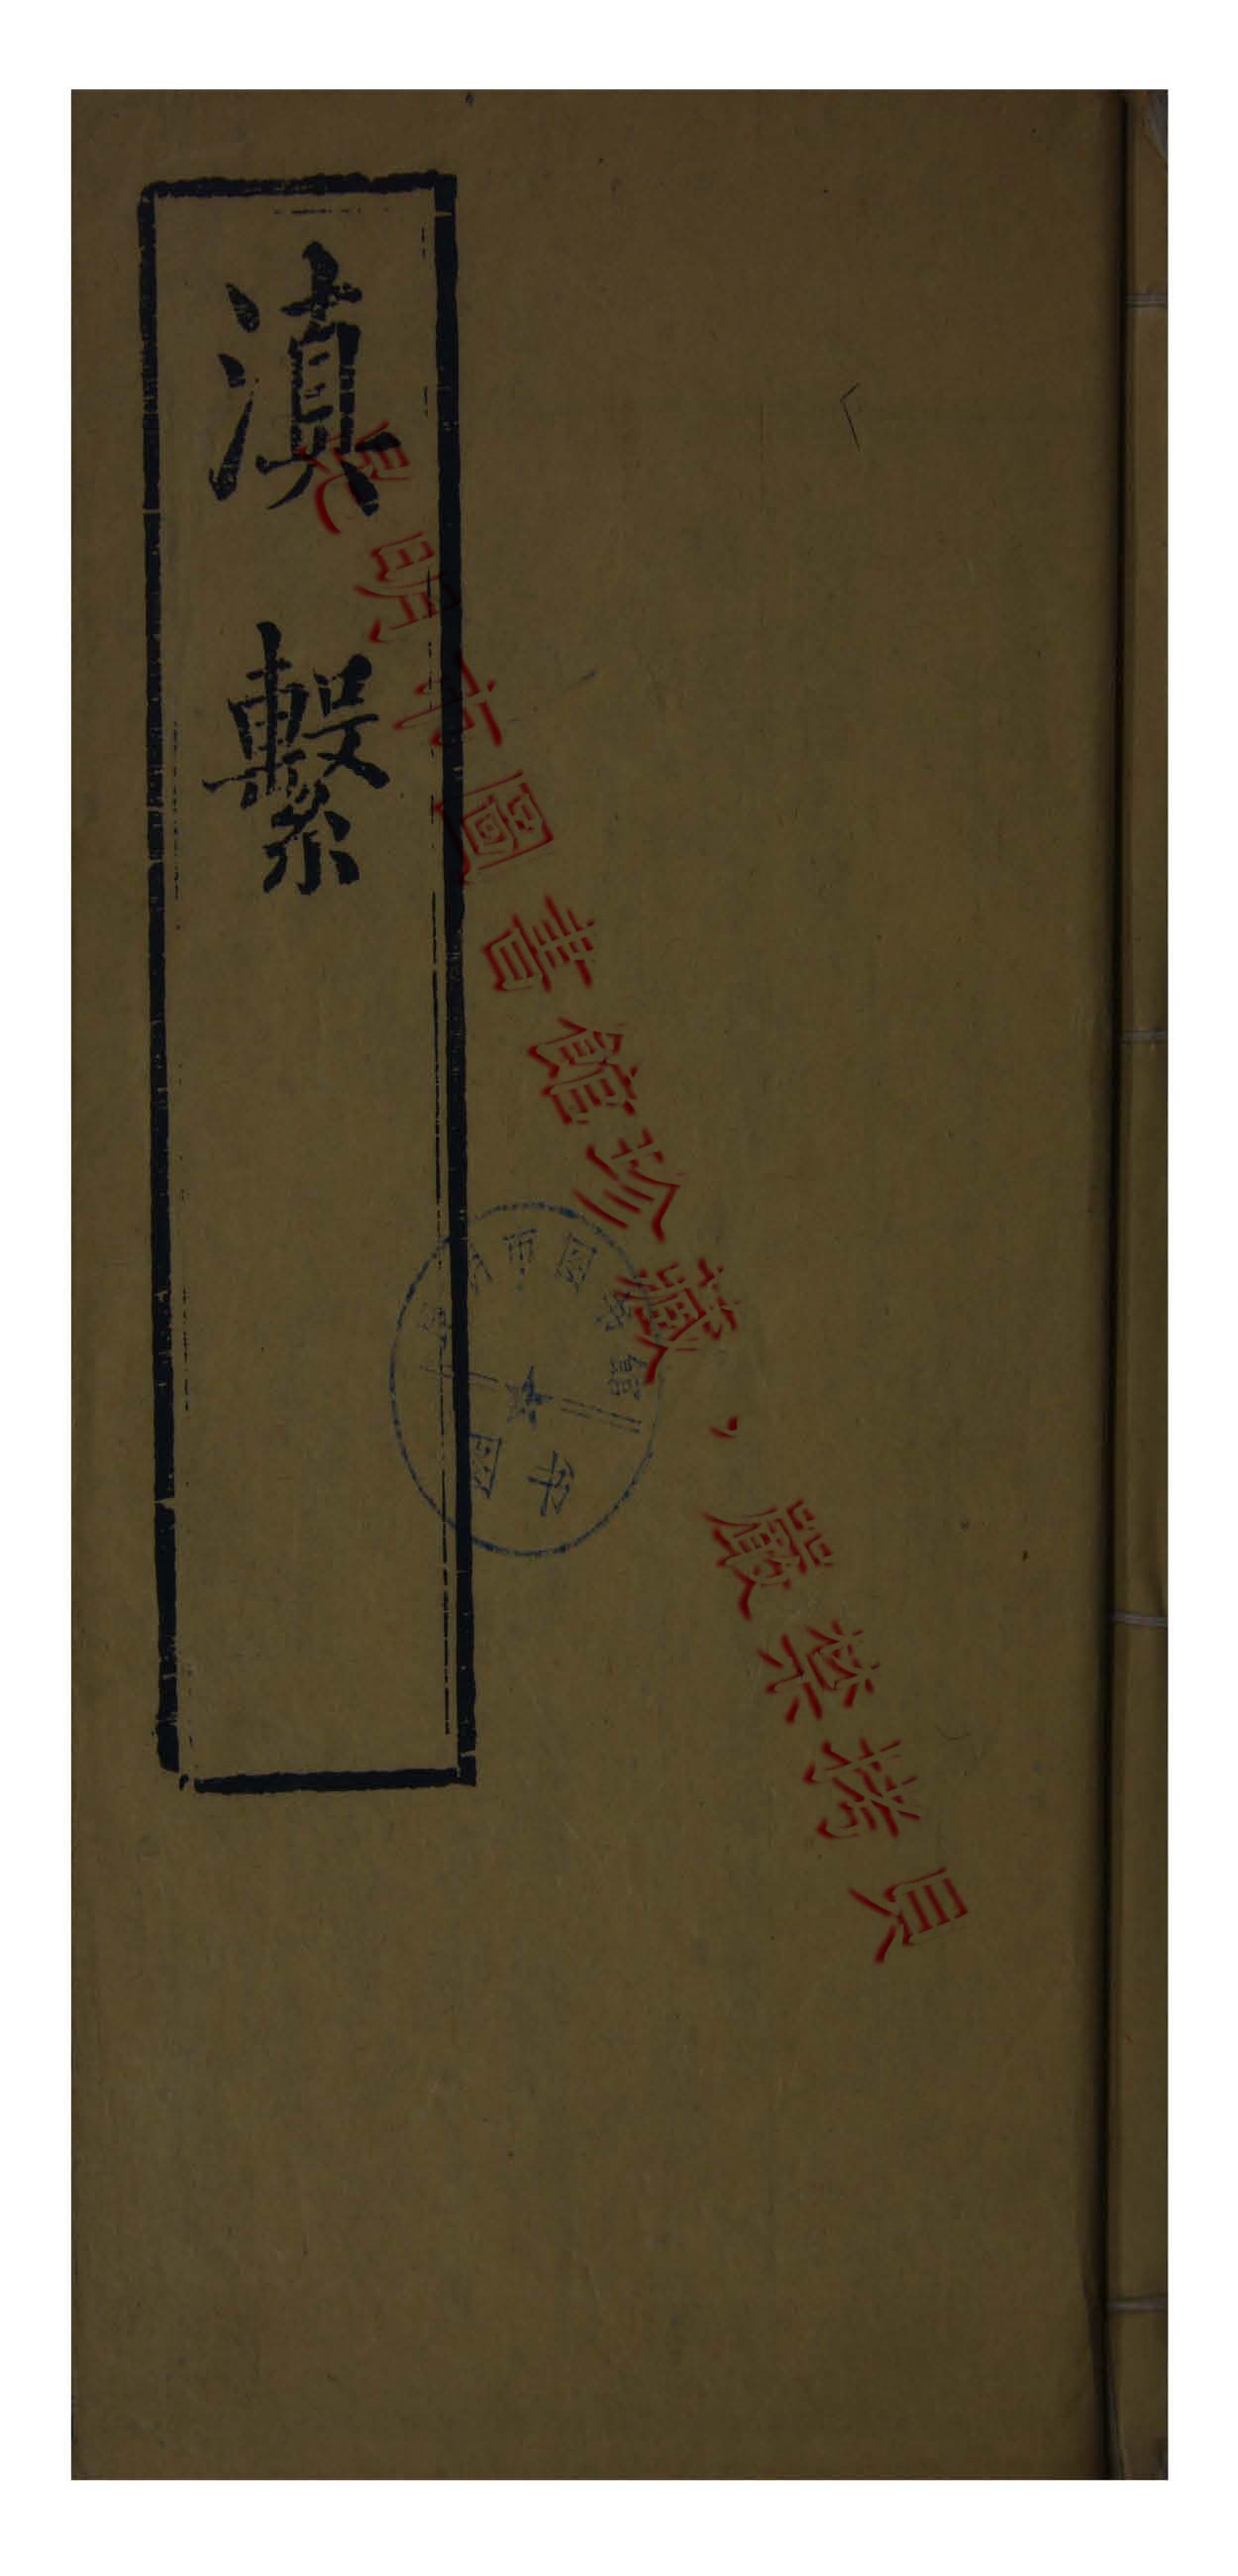 滇繫
昆明市圖書館珍藏，嚴禁拷貝
市圖書館